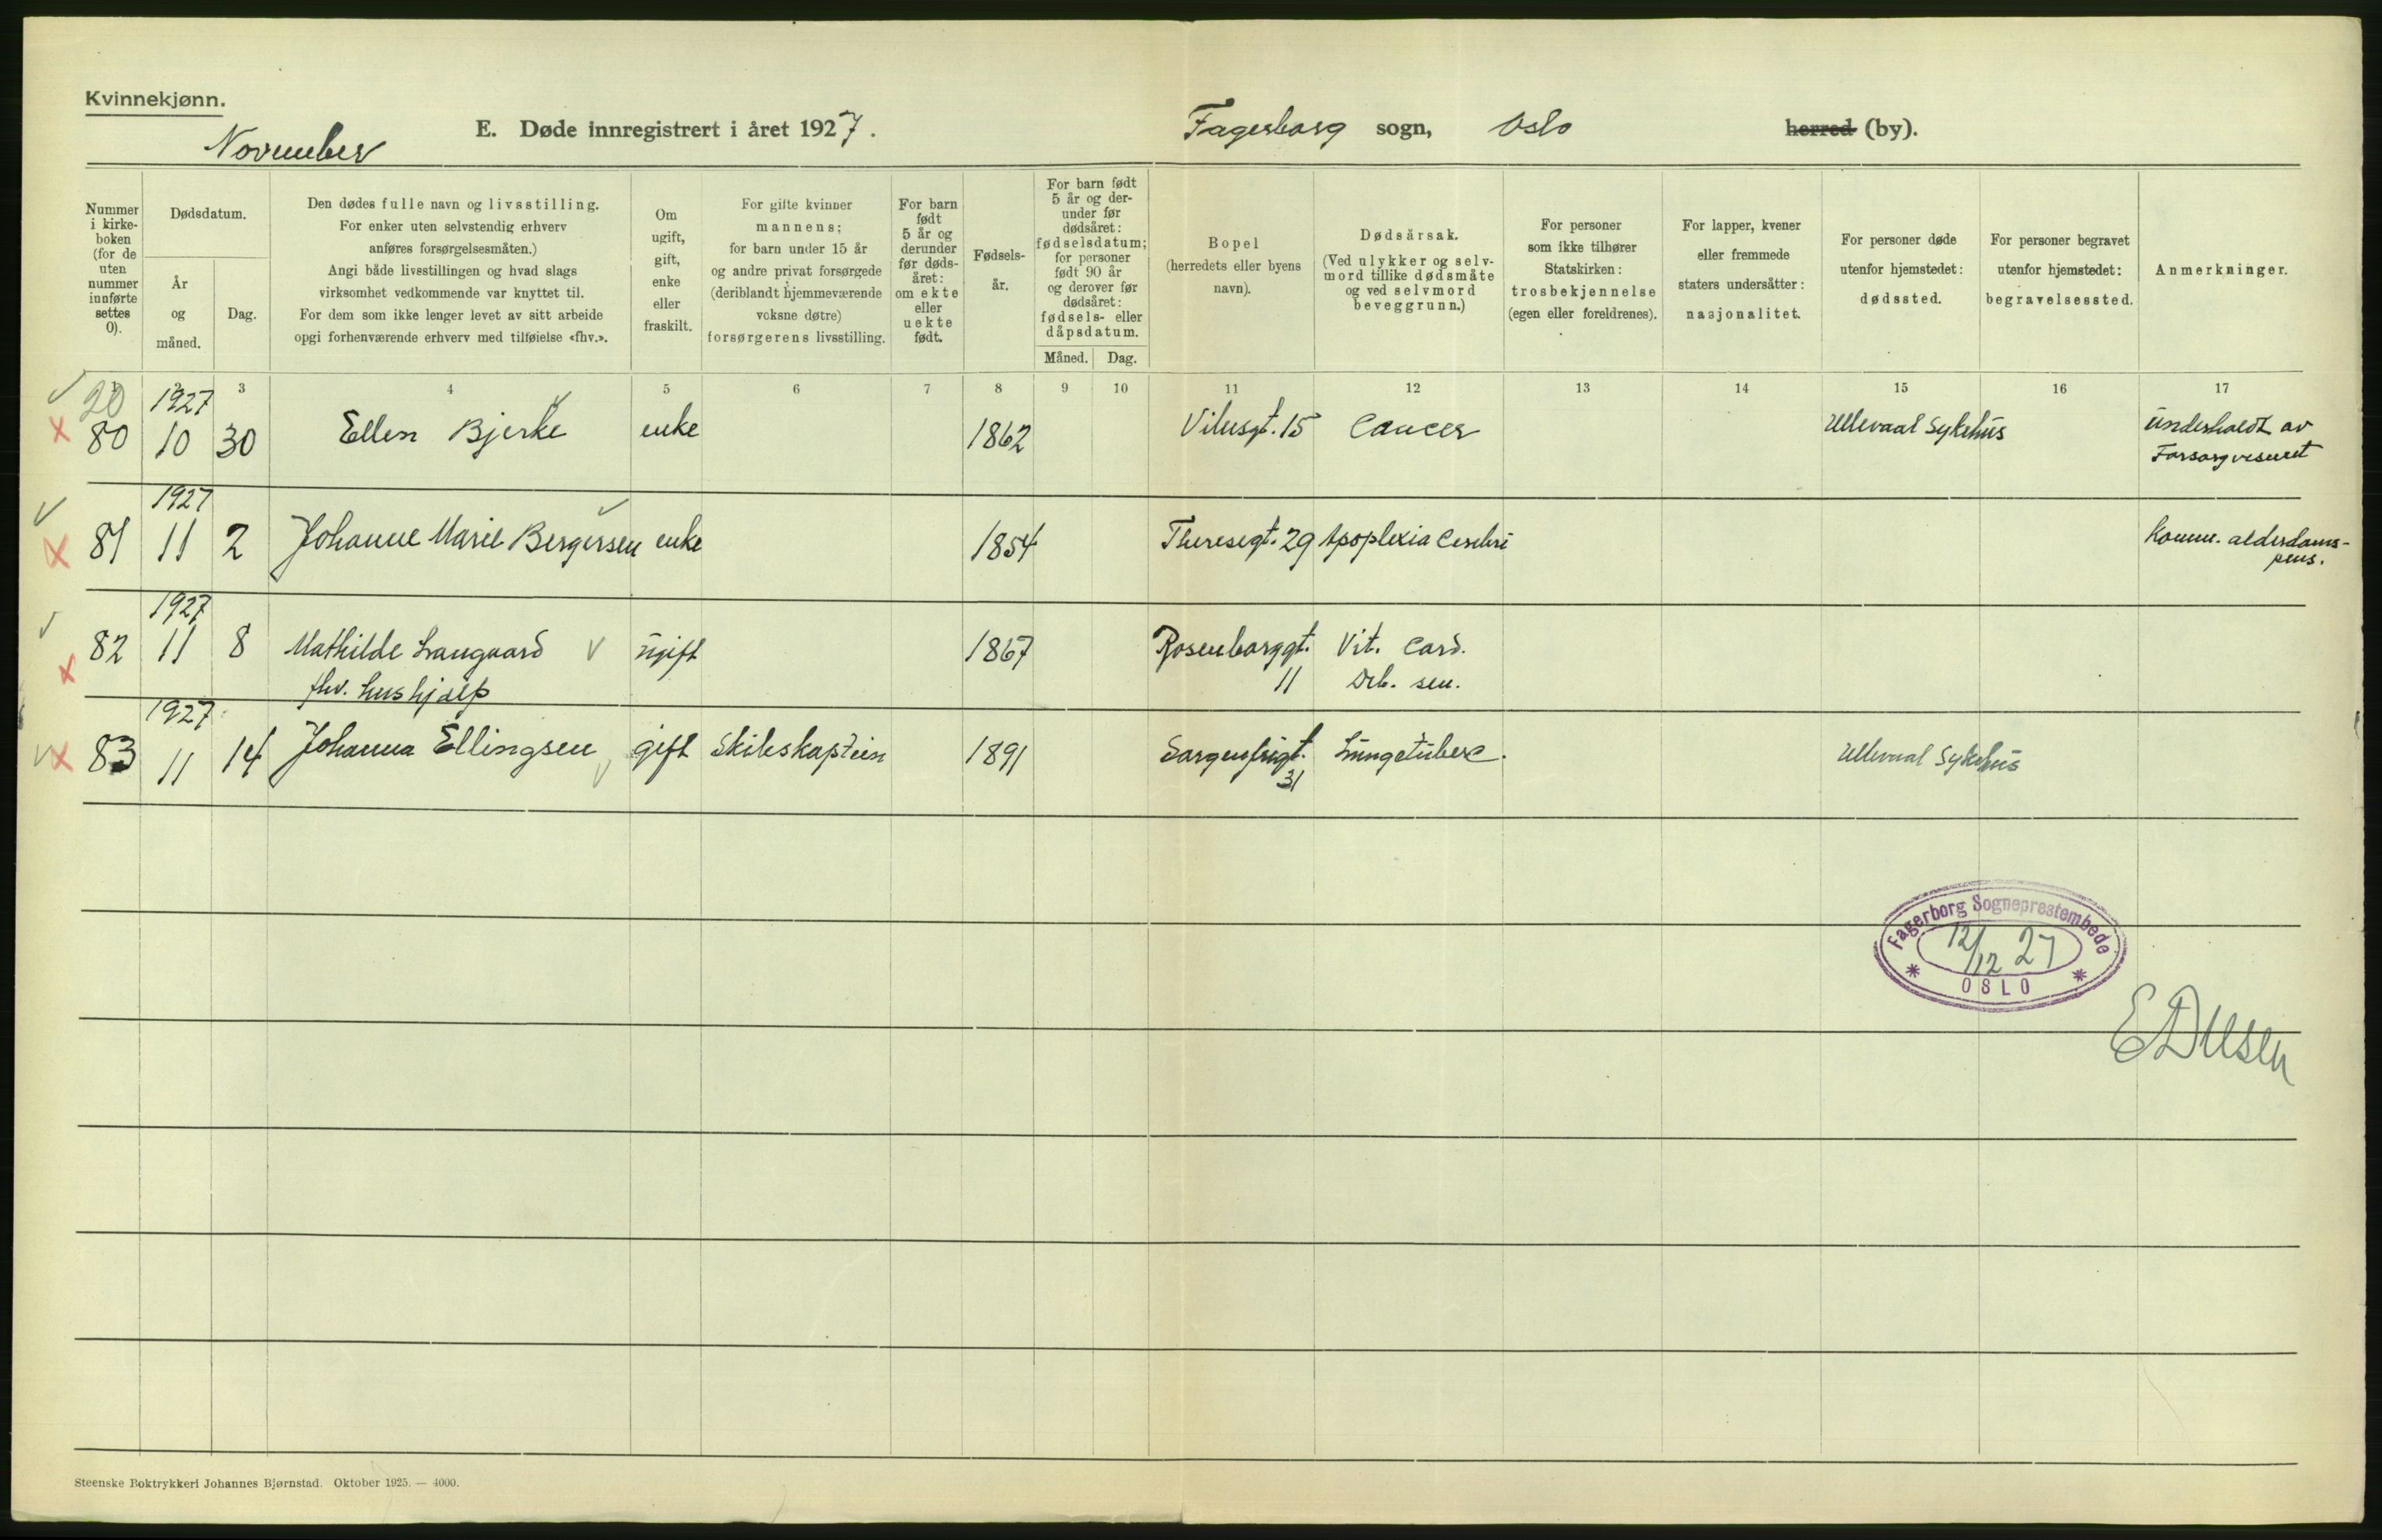 Kvinnekjønn.
November
E. Døde innregistrert i året 1927.
Fagerborg sogn, Oslo herred (by).
Nummer
i kirke-
boken
(for de
uten
nummer
innførte
settes
0).
Dødsdatum.
År
og
måned.
Dag.
Den dødes fulle navn og livsstilling.
For enker uten selvstendig erhverv
anføres forsørgelsesmåten.)
Angi både livsstillingen og hvad slags
virksomhet vedkommende var knyttet til.
For dem som ikke lenger levet av sitt arbeide
opgi forhenværende erhverv med tilføielse «fhv.».
Om
ugift,
gift,
enke
eller
fraskilt.
For gifte kvinner
mannens;
for barn under 15 år
og andre privat forsørgede
(deriblandt hjemmeværende
voksne døtre)
forsørgerens livsstilling.
For barn
født
5 år og
derunder
før døds-
året:
om ekte
eller
uekte
født.
Fødsels-
år.
For barn født
5 år og der-
under før
dødsåret:
fødselsdatum;
for personer
født 90 år
og derover før
dødsåret:
fødsels- eller
dåpsdatum.
Måned. Dag.
Bopel
(herredets eller byens
navn).
Dødsårsak.
(Ved ulykker og selv-
mord tillike dødsmåte
og ved selvmord
beveggrunn.)
For personer
som ikke tilhører
Statskirken:
trosbekjennelse
(egen eller foreldrenes).
For lapper, kvener
eller fremmede
staters undersåtter:
nasjonalitet.
For personer døde
utenfor hjemstedet:
dødssted.
For personer begravet
utenfor hjemstedet:
begravelsessted.
Anmerkninger.
3 4 5 6 7 8 9 10 11 12 13 14 15 16 17
20 1927
80 10 30 Ellen Bjerke enke 1862 Vibesgt. 15 Cancer Ullevaal Sykehus Underholdt av
Forsorgvesenet
1927
81 11 2 Johanne Marie Bergersen enke 1854 Theresegt. 29 Apoplexia Cerebri Komm. alderdoms-
pens.
1927
82 11 8 Mathilde Langaard ugift 1867 Rosenborggt. Vit. Card.
fhv. hushjælp 11 Deb. sen.
1927
83 11 14 Johanna Ellingsen gift Skibskaptein 1891 Sorgenfrigt. Lungetuberc. Ullevaal Sykehus
31
Fagerborg Sogneprestembede
12/12 27
OSLO
Steenske Boktrykkeri Johannes Bjørnstad. Oktober 1925. — 4000.